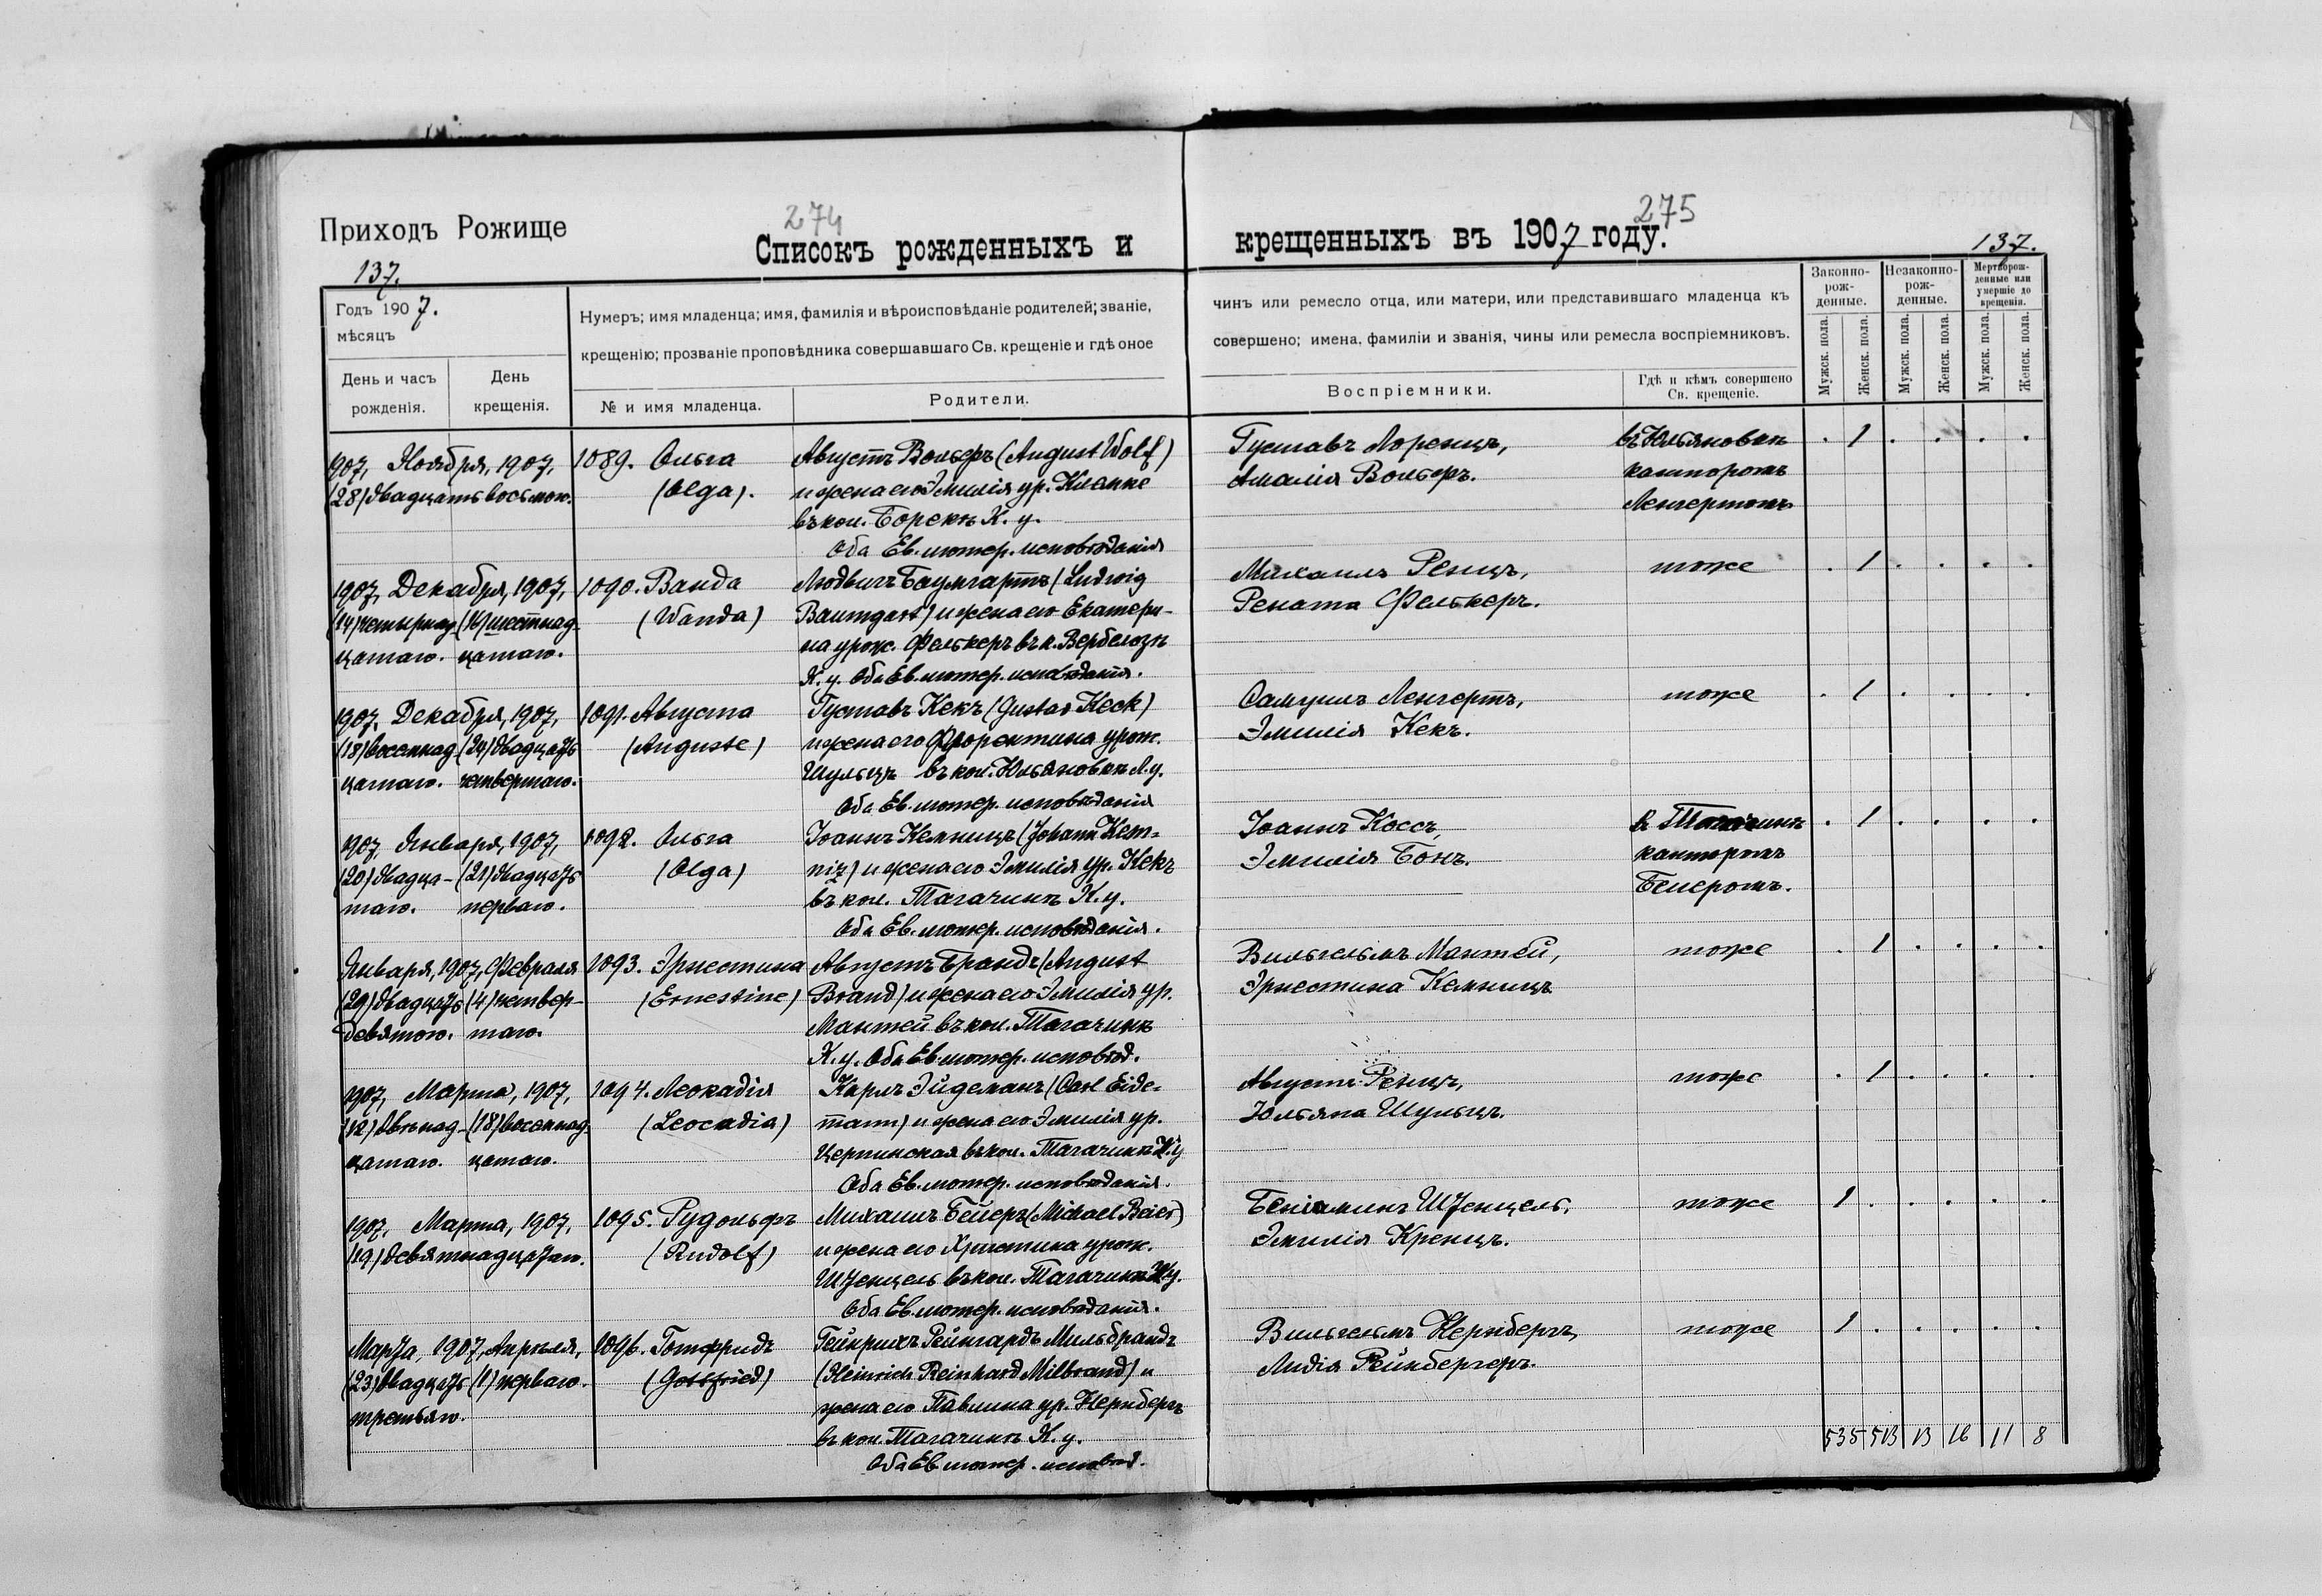 Приходъ Рожище
274
Списокъ рожденныхъ и
137.
Годъ 1907.
мѣсяцъ
Нумеръ; имя младенца; имя, фамилія и вѣроисповѣданіе родителей; званіе,
крещенію; прозваніе проповѣдника совершавшаго Св. крещеніе и гдѣ оное
День и часъ
рожденія.
День
крещенія.
№ и имя младенца.
Родители.
907, Ноября, 1907,
(28) двадцать восьмого.
1089. Ольга
(Olga).
Августъ Вольфъ (August Wolf)
и жена его Эмилія ур. Клапке
въ кол. Борекъ К. у.
Оба Ев. лютер. исповѣданія
1907, Декабря, 1907,
(14) четырнад- (16) шестнад-
цатаго. цатаго.
1090. Ванда
(Wanda)
Людвигъ Баумгартъ (Ludwig
Baumgart) и жена его Екатери-
на урож. Фелькеръ въ к. Вербелозѣ
К. у. Оба Ев. лютер. исповѣданія.
1907, Декабря, 1907,
(18) восемнад (24) двадцать
цатаго. четвертаго.
1091. Августа
(Auguste)
Густавъ Кекъ (Gustav Keck)
и жена его Флорентина урож.
Шульцъ въ кол. Юльяновкѣ Л. у.
Оба Ев. лютер. исповѣданія
1907, Января, 1907,
(20) двадца- (21) двадцать
таго. перваго.
1092. Ольга
(Olga)
Іоаннъ Кемницъ (Johann Kem-
niz) и жена его Эмилія ур. Кекъ
въ кол. Тагачинѣ К. у.
Оба Ев. лютер. исповѣданія.
Января, 1907, Февраля
(29) двадцать (4) четвер-
девятого. таго.
1093. Эрнестина
(Ernestine)
Августъ Брандъ (August
Brand) и жена его Эмилія ур.
Мантей въ кол. Тагачинѣ
К. у. Оба Ев. лютер. исповѣд.
1907, Марта, 1907,
(12) двѣнад- (18) восемнад-
цатаго. цатаго.
1094. Леокадія
(Leocadia)
Карлъ Эйдеманъ (Carl Eide-
mann) и жена его Эмилія ур.
Церпинская въ кол. Тагачинѣ К. у
Оба Ев. лютер. исповѣданія.
1907, Марта, 1907,
(19) девятнадцатаго.
1095. Рудольфъ
(Rudolf)
Михаилъ Бейеръ (Michael Beier)
и жена его Христина урож.
Штенцель въ кол. Тагачинѣ К. у.
Оба Ев. лютер. исповѣданія.
Марта, 1907, Апрѣля,
(23) двадцать (1) перваго.
третьяго.
1096. Готфридъ
(Gottfried)
Гейнрихъ Рейнгардъ Мильбрандъ
(Heinrich Reinhard Milbrand) и
жена его Павлина ур. Нернбергъ
въ кол. Тагачинѣ К. у.
Оба Ев. лютер. исповѣд.
275
крещенныхъ въ 1907 году.
137.
чинъ или ремесло отца, или матери, или представившаго младенца къ
совершено; имена, фамиліи и званія, чины или ремесла воспріемниковъ.
Воспріемники.
Гдѣ и кѣмъ совершено
Св. крещеніе.
Законно-
рож-
денные.
Незаконно-
рож-
денные.
Мертворож-
денные или
умершіе до
крещенія.
Мужск. пола.
Женск. пола.
Мужск. пола.
Женск. пола.
Мужск. пола.
Женск. пола.
Густавъ Лоренцъ, въ Юльяновкѣ . 1 . . . .
Амалія Вольфъ. канторомъ
Ленгертомъ
Михаилъ Ренцъ, тоже . 1 . . . .
Рената Фелькеръ.
Самуилъ Ленгертъ, тоже . 1 . . . .
Эмилія Кекъ.
Іоаннъ Коссъ, в Тагачинѣ . 1 . . . .
Эмилія Бонъ. канторомъ
Бейеромъ.
Вильгельмъ Мантей, тоже . 1 . . . .
Эрнестина Кемницъ
Августъ Ренцъ, тоже . 1 . . . .
Юльяна Шульцъ.
Беніаминъ Штенцель, тоже 1 . . . . .
Эмилія Кренцъ.
Вильгельмъ Нернбергъ, тоже 1 . . . . .
Лидія Рейнбергеръ.
535 513 13 16 11 8